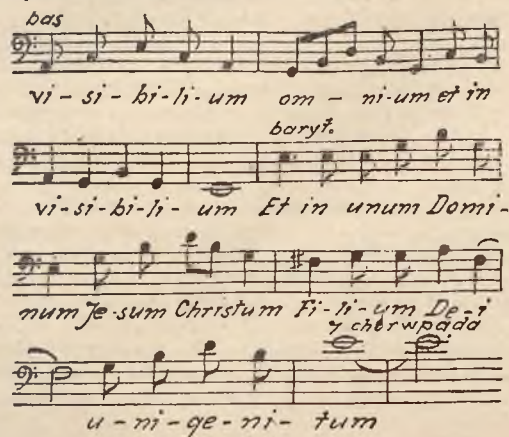 bas
vi-si-bi-li-um om-ni-um et in
baryt.
vi-si-bi-li-um Et in unum Domi-
num Je-sum Christum Fi-li-um De-i
chór wpada
u-ni-ge-ni-tum